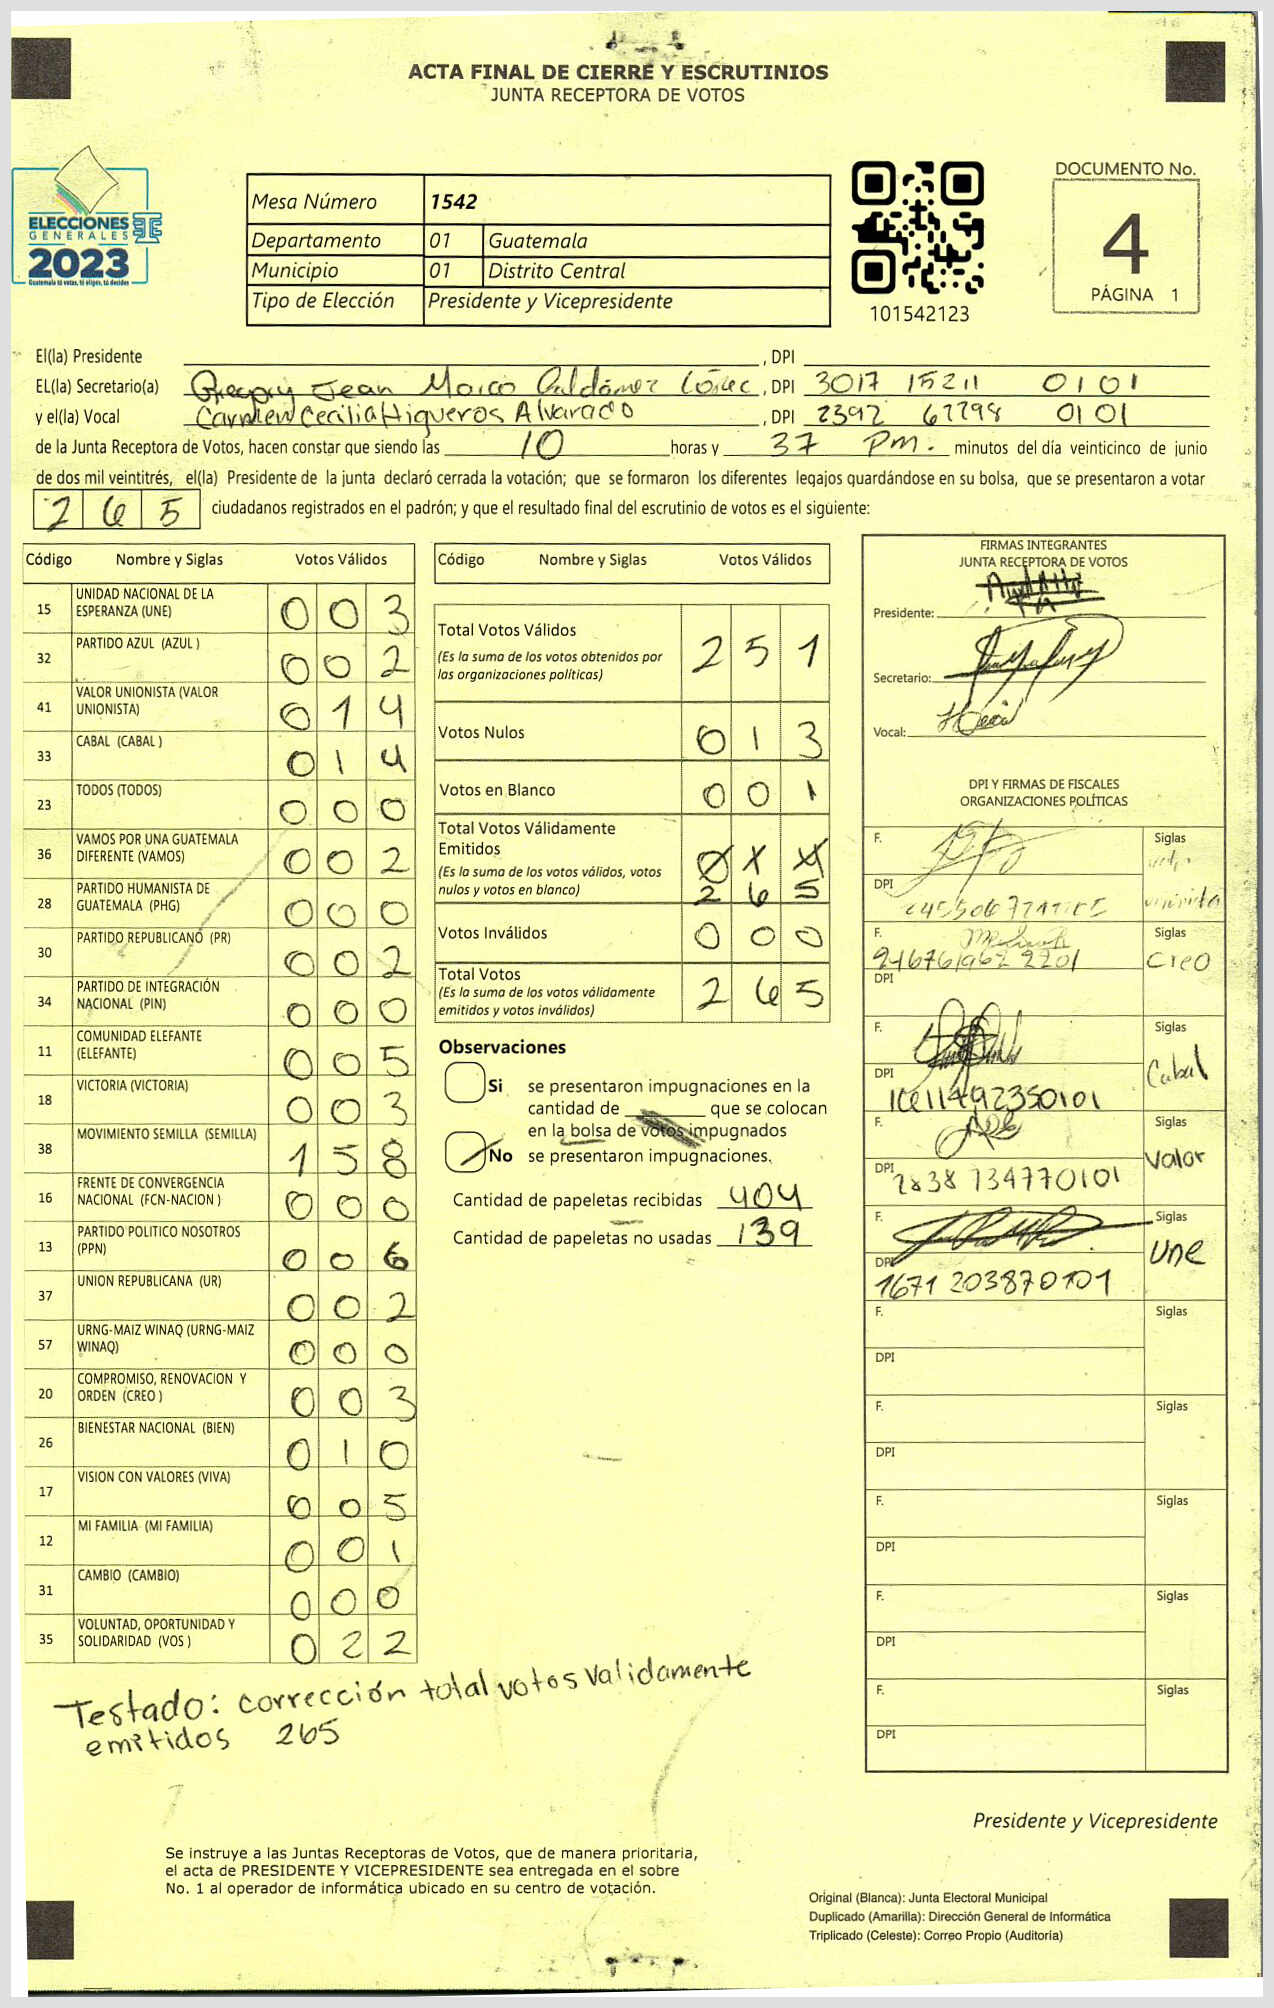 ACTA FINAL DE CIERRE Y ESCRUTINIOS
JUNTA RECEPTORA DE VOTOS
ELECCIONES
GENERALES
2023
Guatemala tú votas, tú eliges, tú decides
Mesa Número 1542
Departamento 01 Guatemala
Municipio 01 Distrito Central
Tipo de Elección Presidente y Vicepresidente
101542123
DOCUMENTO No.
4
PÁGINA 1
El(la) Presidente , DPI
EL(la) Secretario(a) Jean Marco , DPI 3017 15211 0101
y el(la) Vocal Carmen Cecilia Higueros Alvarado , DPI 2392 67798 0101
de la Junta Receptora de Votos, hacen constar que siendo las 10 horas y 37 Pm. minutos del día veinticinco de junio
de dos mil veintitrés, el(la) Presidente de la junta declaró cerrada la votación; que se formaron los diferentes legajos guardándose en su bolsa, que se presentaron a votar
265 ciudadanos registrados en el padrón; y que el resultado final del escrutinio de votos es el siguiente:
Código Nombre y Siglas Votos Válidos
15 UNIDAD NACIONAL DE LA
ESPERANZA (UNE) 003
32 PARTIDO AZUL (AZUL ) 002
41 VALOR UNIONISTA (VALOR
UNIONISTA) 014
33 CABAL (CABAL ) 014
23 TODOS (TODOS) 000
36 VAMOS POR UNA GUATEMALA
DIFERENTE (VAMOS) 002
28 PARTIDO HUMANISTA DE
GUATEMALA (PHG) 000
30 PARTIDO REPUBLICANO (PR) 002
34 PARTIDO DE INTEGRACIÓN
NACIONAL (PIN) 000
11 COMUNIDAD ELEFANTE
(ELEFANTE) 005
18 VICTORIA (VICTORIA) 003
38 MOVIMIENTO SEMILLA (SEMILLA) 158
16 FRENTE DE CONVERGENCIA
NACIONAL (FCN-NACION ) 000
13 PARTIDO POLITICO NOSOTROS
(PPN) 006
37 UNION REPUBLICANA (UR) 002
57 URNG-MAIZ WINAQ (URNG-MAIZ
WINAQ) 000
20 COMPROMISO, RENOVACION Y
ORDEN (CREO ) 003
26 BIENESTAR NACIONAL (BIEN) 010
17 VISION CON VALORES (VIVA) 005
12 MI FAMILIA (MI FAMILIA) 001
31 CAMBIO (CAMBIO) 000
35 VOLUNTAD, OPORTUNIDAD Y
SOLIDARIDAD (VOS ) 022
Testado: corrección total votos validamente
emitidos 265
Código Nombre y Siglas Votos Válidos
Total Votos Válidos 251
(Es la suma de los votos obtenidos por
las organizaciones políticas)
Votos Nulos 013
Votos en Blanco 001
Total Votos Válidamente
Emitidos
(Es la suma de los votos válidos, votos
nulos y votos en blanco) 265
Votos Inválidos 000
Total Votos 265
(Es la suma de los votos válidamente
emitidos y votos inválidos)
Observaciones
Si se presentaron impugnaciones en la
cantidad de que se colocan
en la bolsa de votos impugnados
No se presentaron impugnaciones.
Cantidad de papeletas recibidas 404
Cantidad de papeletas no usadas 139
FIRMAS INTEGRANTES
JUNTA RECEPTORA DE VOTOS
Presidente:
Secretario:
Vocal:
DPI Y FIRMAS DE FISCALES
ORGANIZACIONES POLÍTICAS
F. Siglas
DPI
F. Siglas
Creo
DPI
F. Siglas
Cabal
DPI
F. Siglas
Valor
DPI 2838 134770101
F. Siglas
Une
DPI
1671 203870101
F. Siglas
DPI
F. Siglas
DPI
F. Siglas
DPI
F. Siglas
DPI
F. Siglas
DPI
Presidente y Vicepresidente
Se instruye a las Juntas Receptoras de Votos, que de manera prioritaria,
el acta de PRESIDENTE Y VICEPRESIDENTE sea entregada en el sobre
No. 1 al operador de informática ubicado en su centro de votación.
Original (Blanca): Junta Electoral Municipal
Duplicado (Amarilla): Dirección General de Informática
Triplicado (Celeste): Correo Propio (Auditoría)